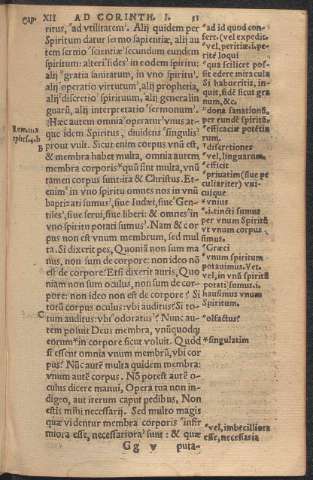 CAP. XII AD CORINTH. I. 51
ritus, ad vtilitatem. Alij quidem per
Spiritum datur sermo sapientiæ, alij au
tem sermo scientiæ secundum eundem
spiritum: alteri fides in eodem spiritu:
alij gratia sanitatum, in vno spiritu,
alij operatio virtutum, alij prophetia,
alij discretio spirituum, alij genera lin
guarũ, alij interpretatio sermonum.
Hæc autem omnia operatur vnus at-
que idem Spiritus, diuidens singulis
prout vult. Sicut enim corpus vnũ est,
& membra habet multa, omnia autem
membra corporis quũ sint multa, vnũ
tamen corpus sunt: ita & Christus. Et-
enim in vno spiritu omnes nos in vnũ
baptizati sumus, siue Iudæi, siue Gen-
tiles, siue serui, siue liberi: & omnes in
vno spiritu potati sumus. Nam & cor
pus non est vnum membrum, sed mul
ta. Si dixerit pes, Quoniã non sum ma
nus, non sum de corpore: non ideo nõ
est de corpore? Et si dixerit auris, Quo
niam non sum oculus, non sum de cor-
pore: non ideo non est de corpore? Si
totũ corpus oculus: vbi auditus? Si to-
tum auditus: vbi odoratus? Nunc au-
tem posuit Deus membra, vnũquodq
eorum in corpore sicut voluit. Quod
si essent omnia vnum membrũ, vbi cor
pus? Nũc autẽ multa quidem membra:
vnum autẽ corpus. Nõ potest autẽ o-
culus dicere manui, Opera tua non in-
digeo, aut iterum caput pedibus, Non
estis mihi necessarij. Sed multo magis
quæ videntur membra corporis infir
miora esse, necessariora sunt: & quæ
Gg v puta-
Romans
B
C
ad id quod con
fert. (vel expedit.
vel, peritiæ. i. pe-
rité loqui
qua scilicet pos-
sit edere miracula
dona sanationũ,
per eundẽ spiritũ
efficaciæ potẽtia
rum.
discretiones
vel, linguarum.
efficit
priuatim (siue pe
culiariter) vni-
cuique
vnius
i. tincti sumus
per vnum Spiritũ
vt vnum corpus
simus.
Græci
vnum spiritum
potauimus. Vet.
vel, in vnũ spiritũ
potati sumus. i.
hausimus vnum
Spiritum.
olfactus?
singulatim
vel, imbecilliora
esse, necessaria